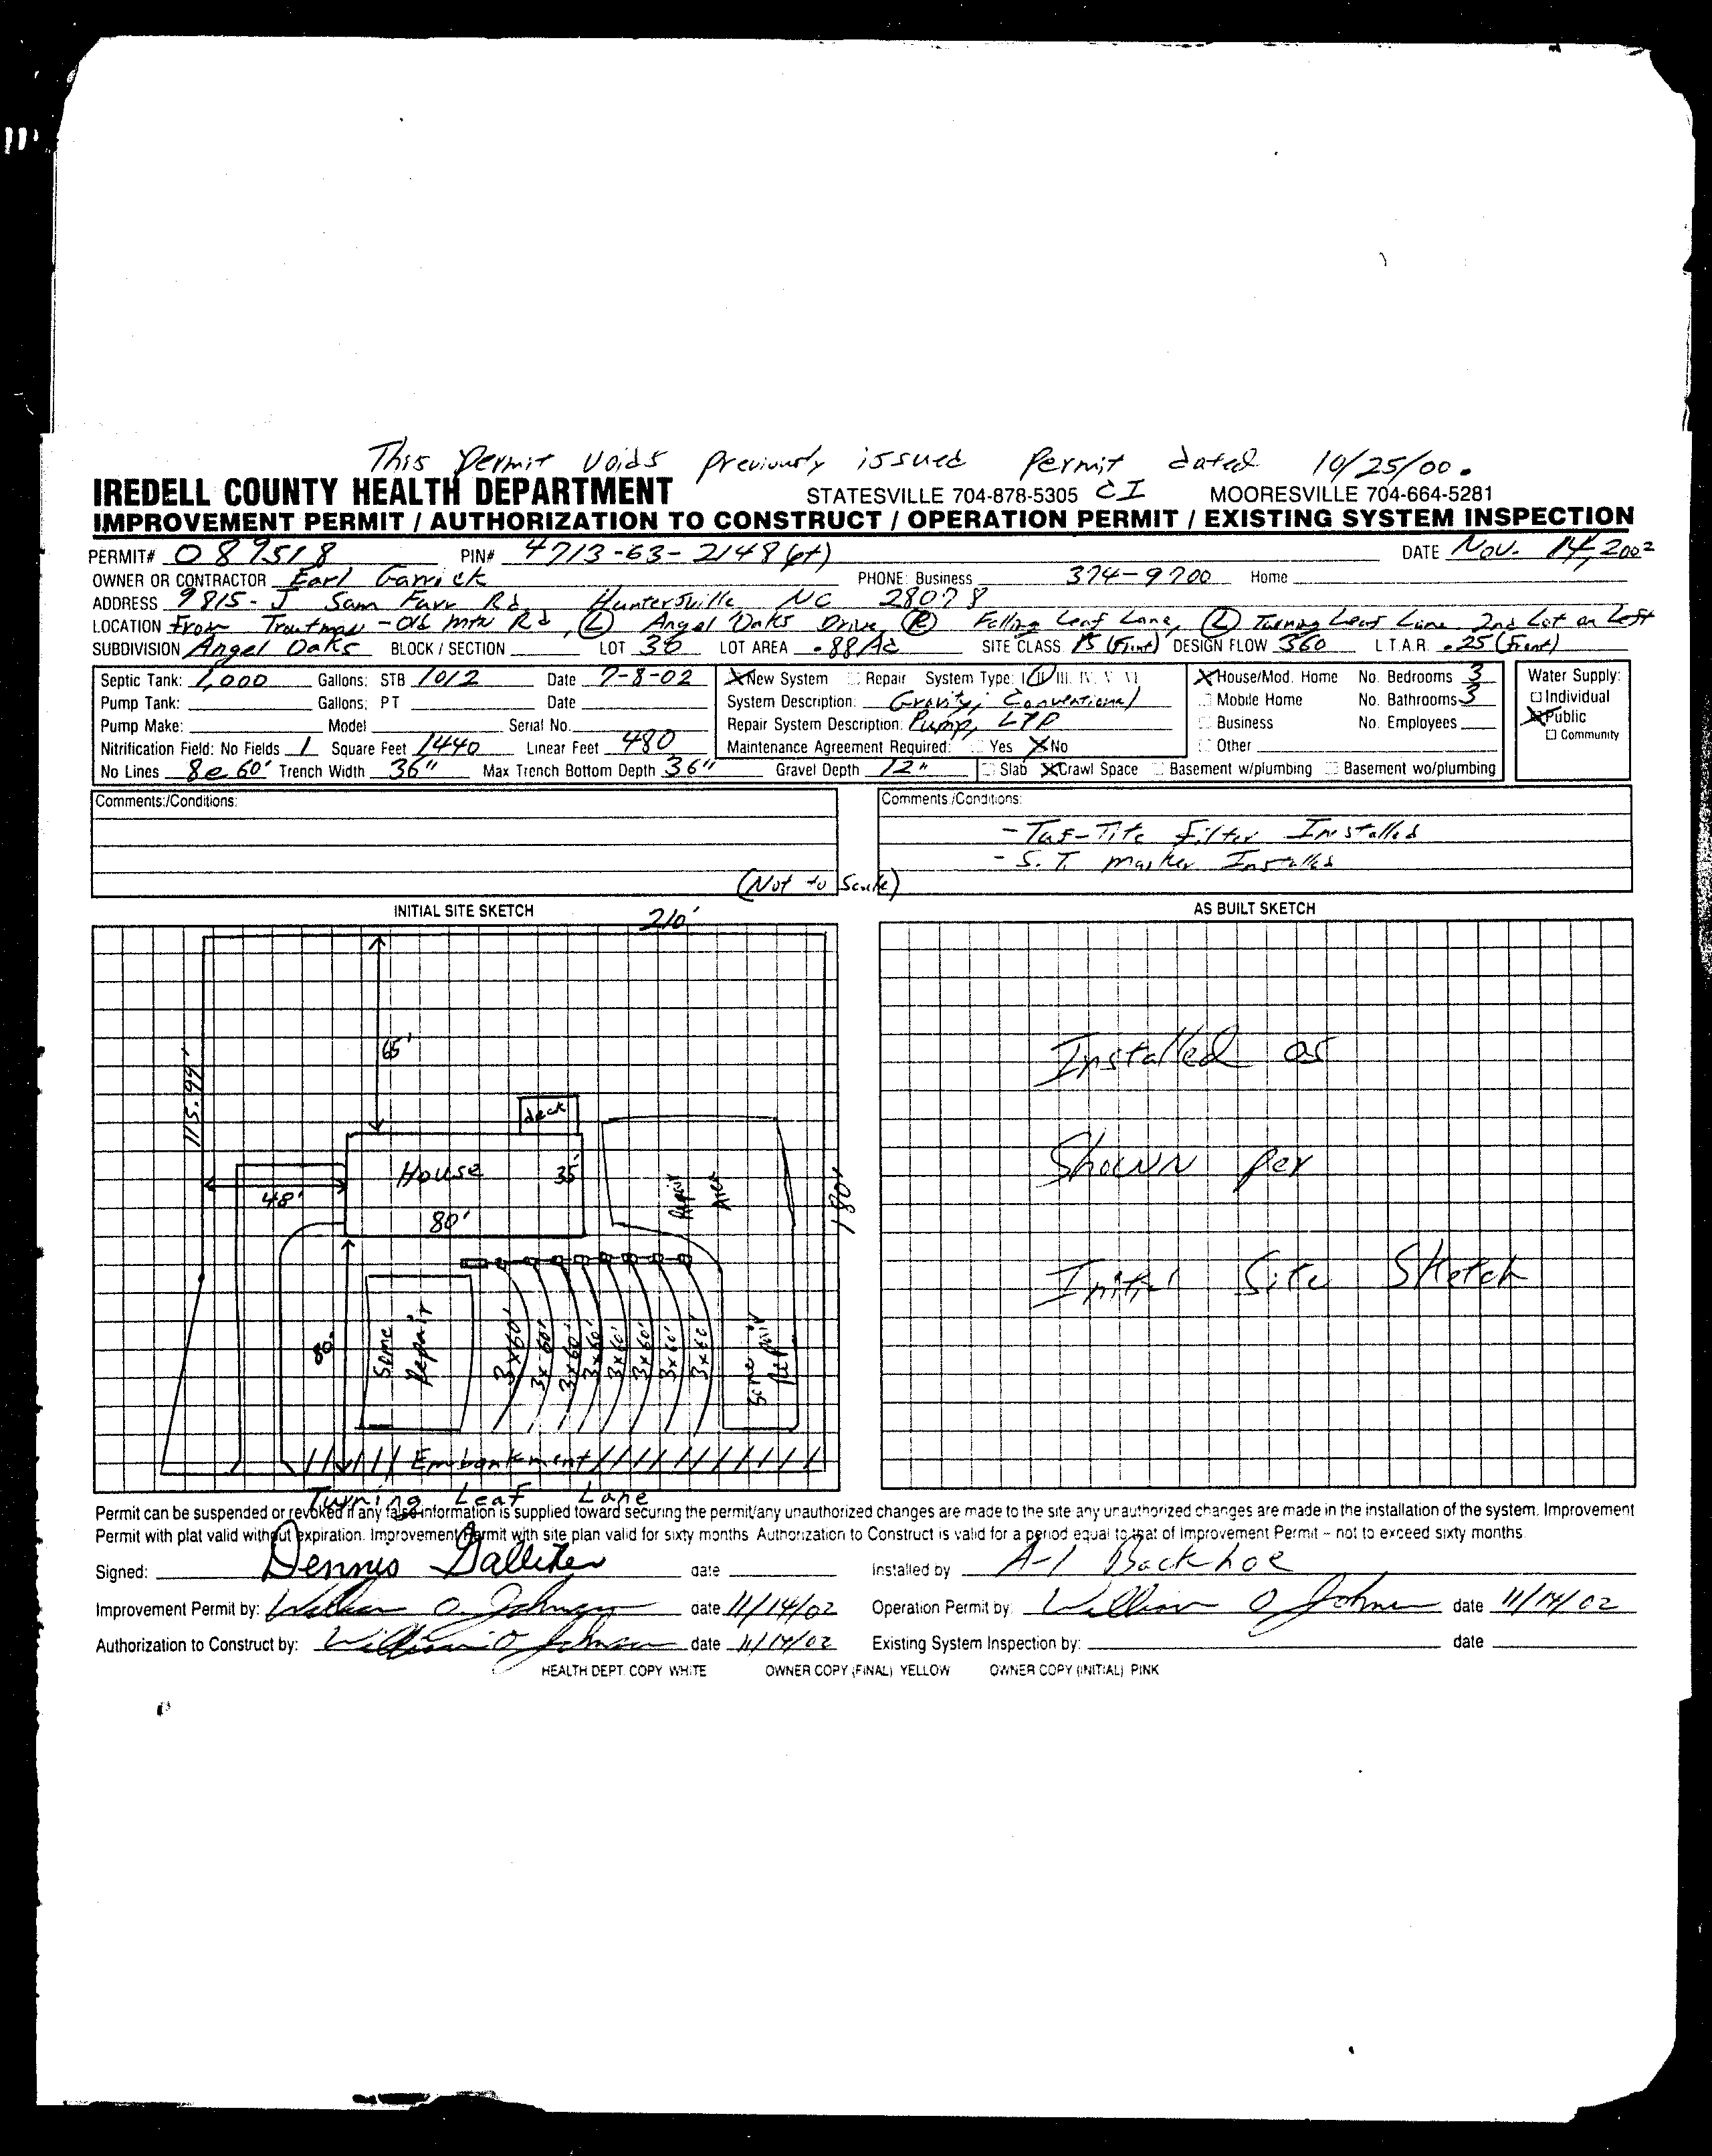 This Permit Voids previously issued Permit dated 10/25/00.
IREDELL COUNTY HEALTH DEPARTMENT STATESVILLE 704-878-5305 CI MOORESVILLE 704-664-5281
IMPROVEMENT PERMIT / AUTHORIZATION TO CONSTRUCT / OPERATION PERMIT / EXISTING SYSTEM INSPECTION
PERMIT# 089518 PIN# 4713-63-2148 (pt) DATE Nov. 14, 2002
OWNER OR CONTRACTOR Earl Garrick PHONE: Business 374-9700 Home
ADDRESS 9815-J Sam Furr Rd Huntersville NC 28078
LOCATION From Troutman - Old Mtn Rd, (L) Angel Oaks Drive, (R) Falling Leaf Lane, (L) Turning Leaf Lane 2nd Lot on Left
SUBDIVISION Angel Oaks BLOCK / SECTION LOT 36 LOT AREA .88 Ac SITE CLASS PS (Front) DESIGN FLOW 360 L.T.A.R. .25 (Front)
Septic Tank: 1,000 Gallons: STB 1012 Date 7-8-02 X New System Repair System Type: I II III IV V VI X House/Mod. Home No. Bedrooms 3 Water Supply:
Pump Tank: Gallons: PT Date System Description: Gravity; Conventional Mobile Home No. Bathrooms 3 Individual
Pump Make: Model Serial No. Repair System Description: Pump, LPP Business No. Employees X Public
Nitrification Field: No Fields 1 Square Feet 1440 Linear Feet 480 Maintenance Agreement Required: Yes X No Other Community
No Lines 8 @ 60' Trench Width 36" Max Trench Bottom Depth 36" Gravel Depth 12" Slab X Crawl Space Basement w/plumbing Basement wo/plumbing
Comments:/Conditions: Comments:/Conditions:
- Tuf-Tite Filter Installed
- S.T. marker Installed
(Not to Scale)
INITIAL SITE SKETCH AS BUILT SKETCH
210'
65'
115.99'
deck
House 35'
48'
80'
Repair Area
180'
80'
Some Repair
3x60' 3x60' 3x60' 3x60' 3x60' 3x60' 3x60' 3x60'
Some Repair
Embankment
Turning Leaf Lane
Installed as
Shown per
Initial Site Sketch
Permit can be suspended or revoked if any false information is supplied toward securing the permit/any unauthorized changes are made to the site any unauthorized changes are made in the installation of the system. Improvement
Permit with plat valid without expiration. Improvement Permit with site plan valid for sixty months Authorization to Construct is valid for a period equal to that of Improvement Permit – not to exceed sixty months.
Signed: Dennis date Installed by A-1 Backhoe
Improvement Permit by: William O Johnson date 11/14/02 Operation Permit by: William O Johnson date 11/14/02
Authorization to Construct by: William O Johnson date 11/14/02 Existing System Inspection by: date
HEALTH DEPT. COPY WHITE OWNER COPY (FINAL) YELLOW OWNER COPY (INITIAL) PINK